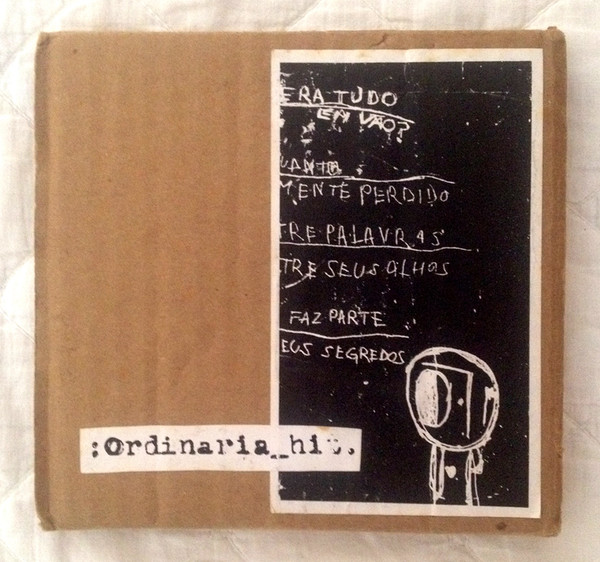 ERA TUDO
EM VÃO?
UANTA
MENTE PERDIDO
TRE PALAVRAS
TRE SEUS OLHOS
FAZ PARTE
EUS SEGREDOS
:Ordinaria_hit.